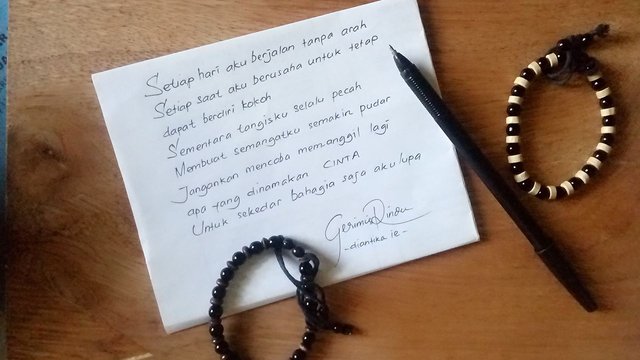 Setiap hari aku berjalan tanpa arah
Setiap saat aku berusaha untuk tetap
dapat berdiri kokoh
Sementara tangisku selalu pecah
Membuat semangatku semakin pudar
Jangankan mencoba memanggil lagi
apa yang dinamakan CINTA
Untuk sekedar bahagia saja aku lupa
Gerimis Rindu
-diantika ie-